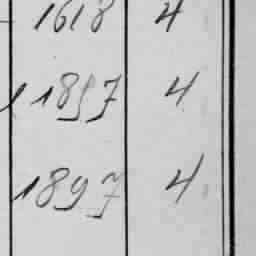 1618 4
1897 4
1897 4